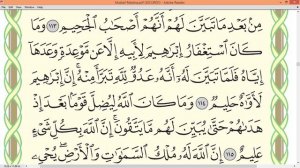 Mushaf Madina.pdf (SECURED) - Adobe Reader
مِنۢ بَعْدِ مَا تَبَيَّنَ لَهُمْ أَنَّهُمْ أَصْحَٰبُ ٱلْجَحِيمِ ١١٣ وَمَا
كَانَ ٱسْتِغْفَارُ إِبْرَٰهِيمَ لِأَبِيهِ إِلَّا عَن مَّوْعِدَةٍ وَعَدَهَآ
إِيَّاهُ فَلَمَّا تَبَيَّنَ لَهُۥٓ أَنَّهُۥ عَدُوٌّ لِّلَّهِ تَبَرَّأَ مِنْهُ ۚ إِنَّ إِبْرَٰهِيمَ
لَأَوَّٰهٌ حَلِيمٌ ١١٤ وَمَا كَانَ ٱللَّهُ لِيُضِلَّ قَوْمًۢا بَعْدَ إِذْ
هَدَىٰهُمْ حَتَّىٰ يُبَيِّنَ لَهُم مَّا يَتَّقُونَ ۚ إِنَّ ٱللَّهَ بِكُلِّ شَىْءٍ
عَلِيمٌ ١١٥ إِنَّ ٱللَّهَ لَهُۥ مُلْكُ ٱلسَّمَٰوَٰتِ وَٱلْأَرْضِ ۖ يُحْىِۦ